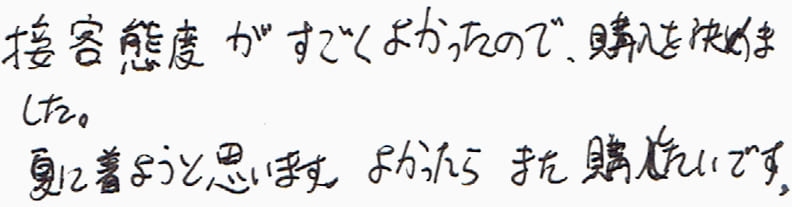 接客態度がすごくよかったので、購入を決めま
した。
夏に着ようと思います。よかったら また 購入したいです。